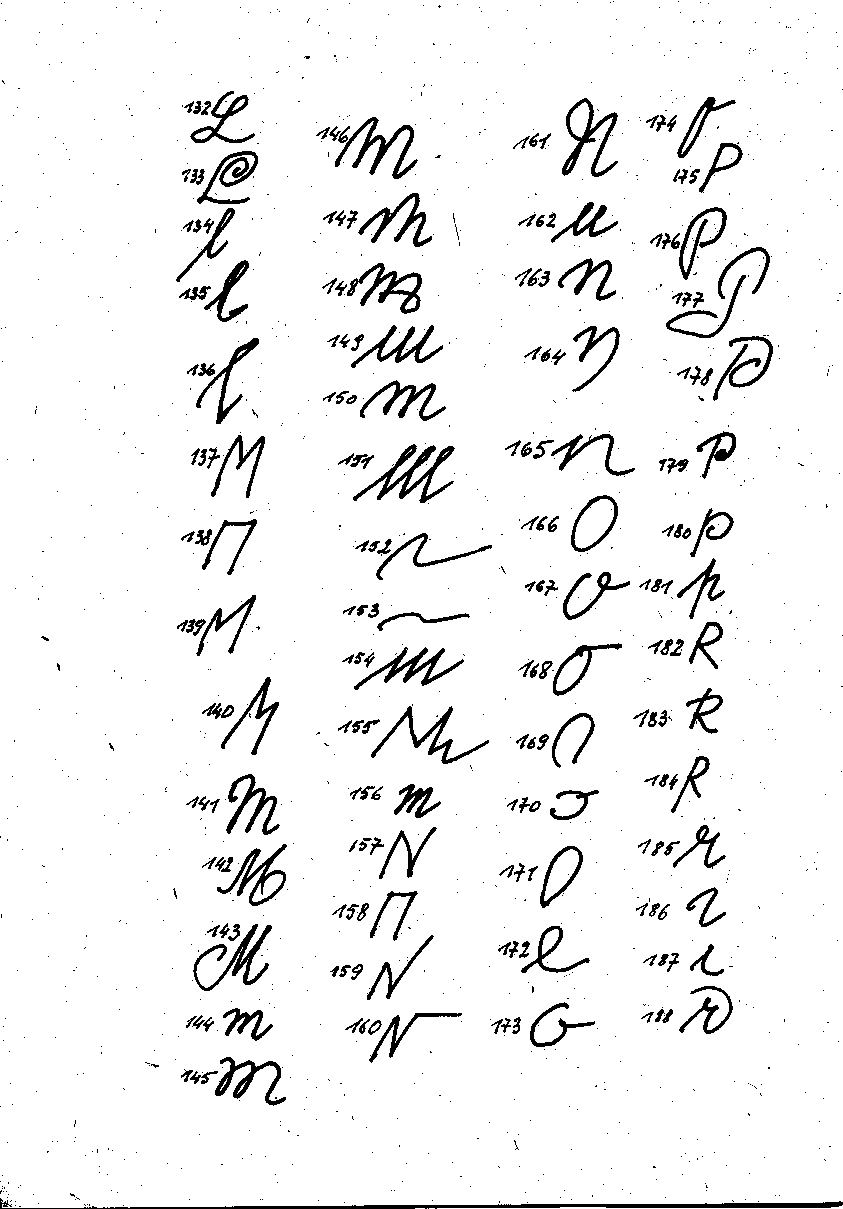 132 L
133 L
134 l
135 l
136 l
137 M
138 M
139 M
140 M
141 M
142 M
143 M
144 m
145 m
146 m
147 m
148 m
149 m
150 m
151 m
152
153
154 m
155 M
156 m
157 N
158 N
159 N
160 N
161 N
162 n
163 n
164 n
165 n
166 O
167 O
168 O
169 O
170 O
171 O
172 O
173 O
174 P
175 P
176 P
177 P
178 P
179 P
180 p
181 p
182 R
183 R
184 R
185 r
186 r
187 r
188 r